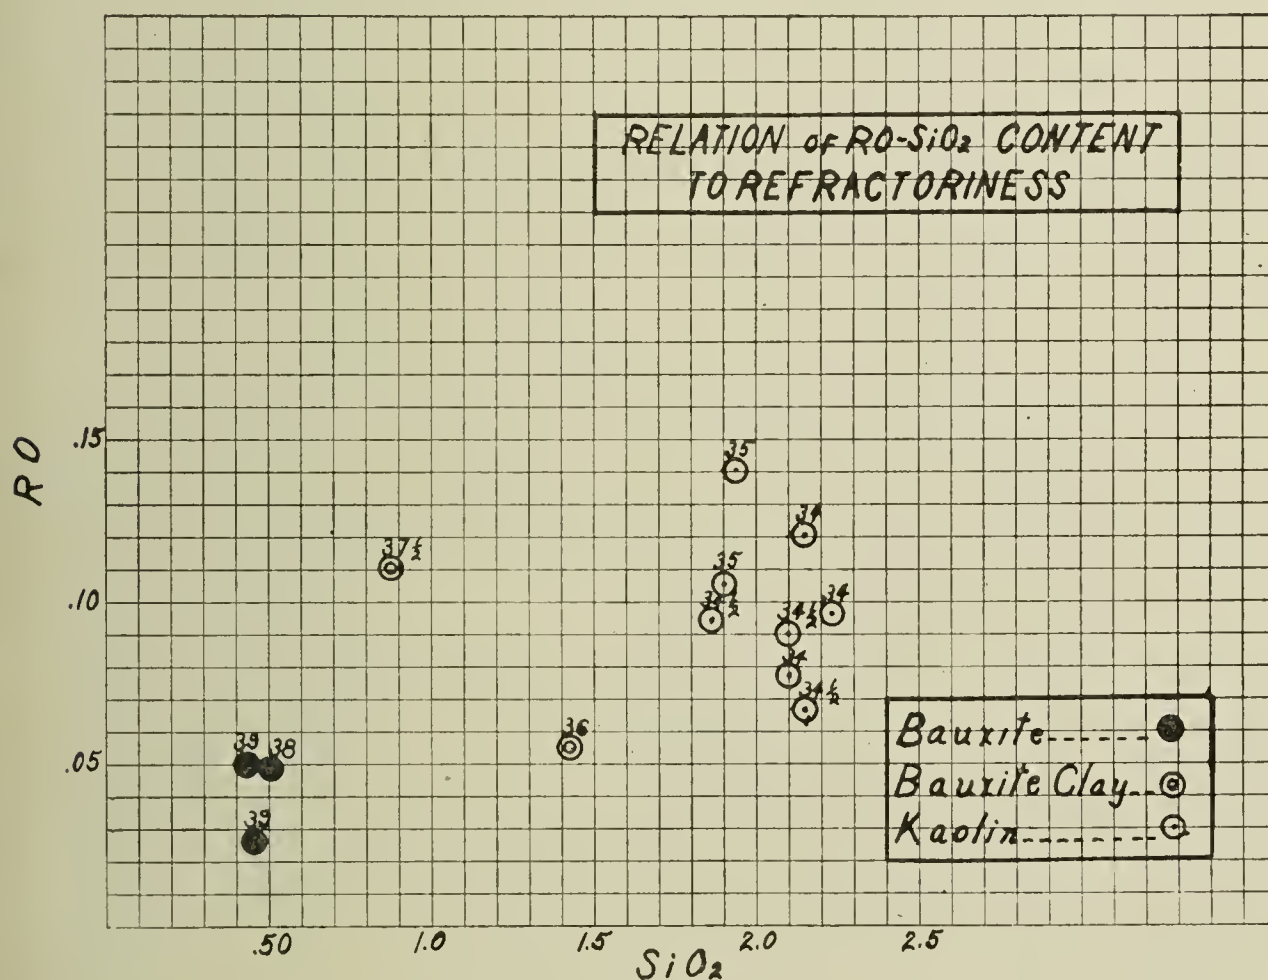 RELATION OF RO-SiO₂ CONTENT
TO REFRACTORINESS
RO
.15
.10
.05
35
34
37½
35
34
34½
34
34½
36
39
38
39
Bauxite------
Bauxite Clay--
Kaolin--------
.50
1.0
1.5
2.0
2.5
SiO₂